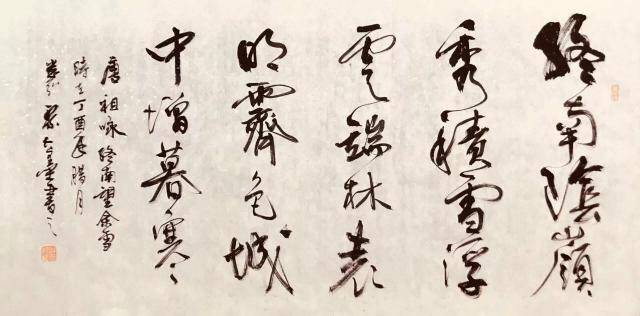 終南陰嶺
秀積雪浮
雲端林表
明霽色城
中增暮寒
唐祖咏終南望余雪
時在丁酉年腊月
書之